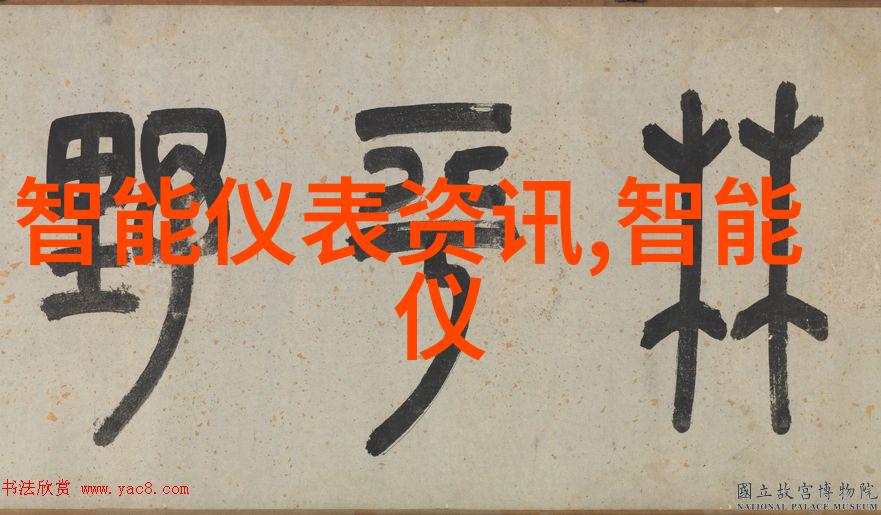 野 林
智能仪表资讯,智能
仪
书法欣赏 www.yac8.com
國立故宮博物院
NATIONAL PALACE MUSEUM